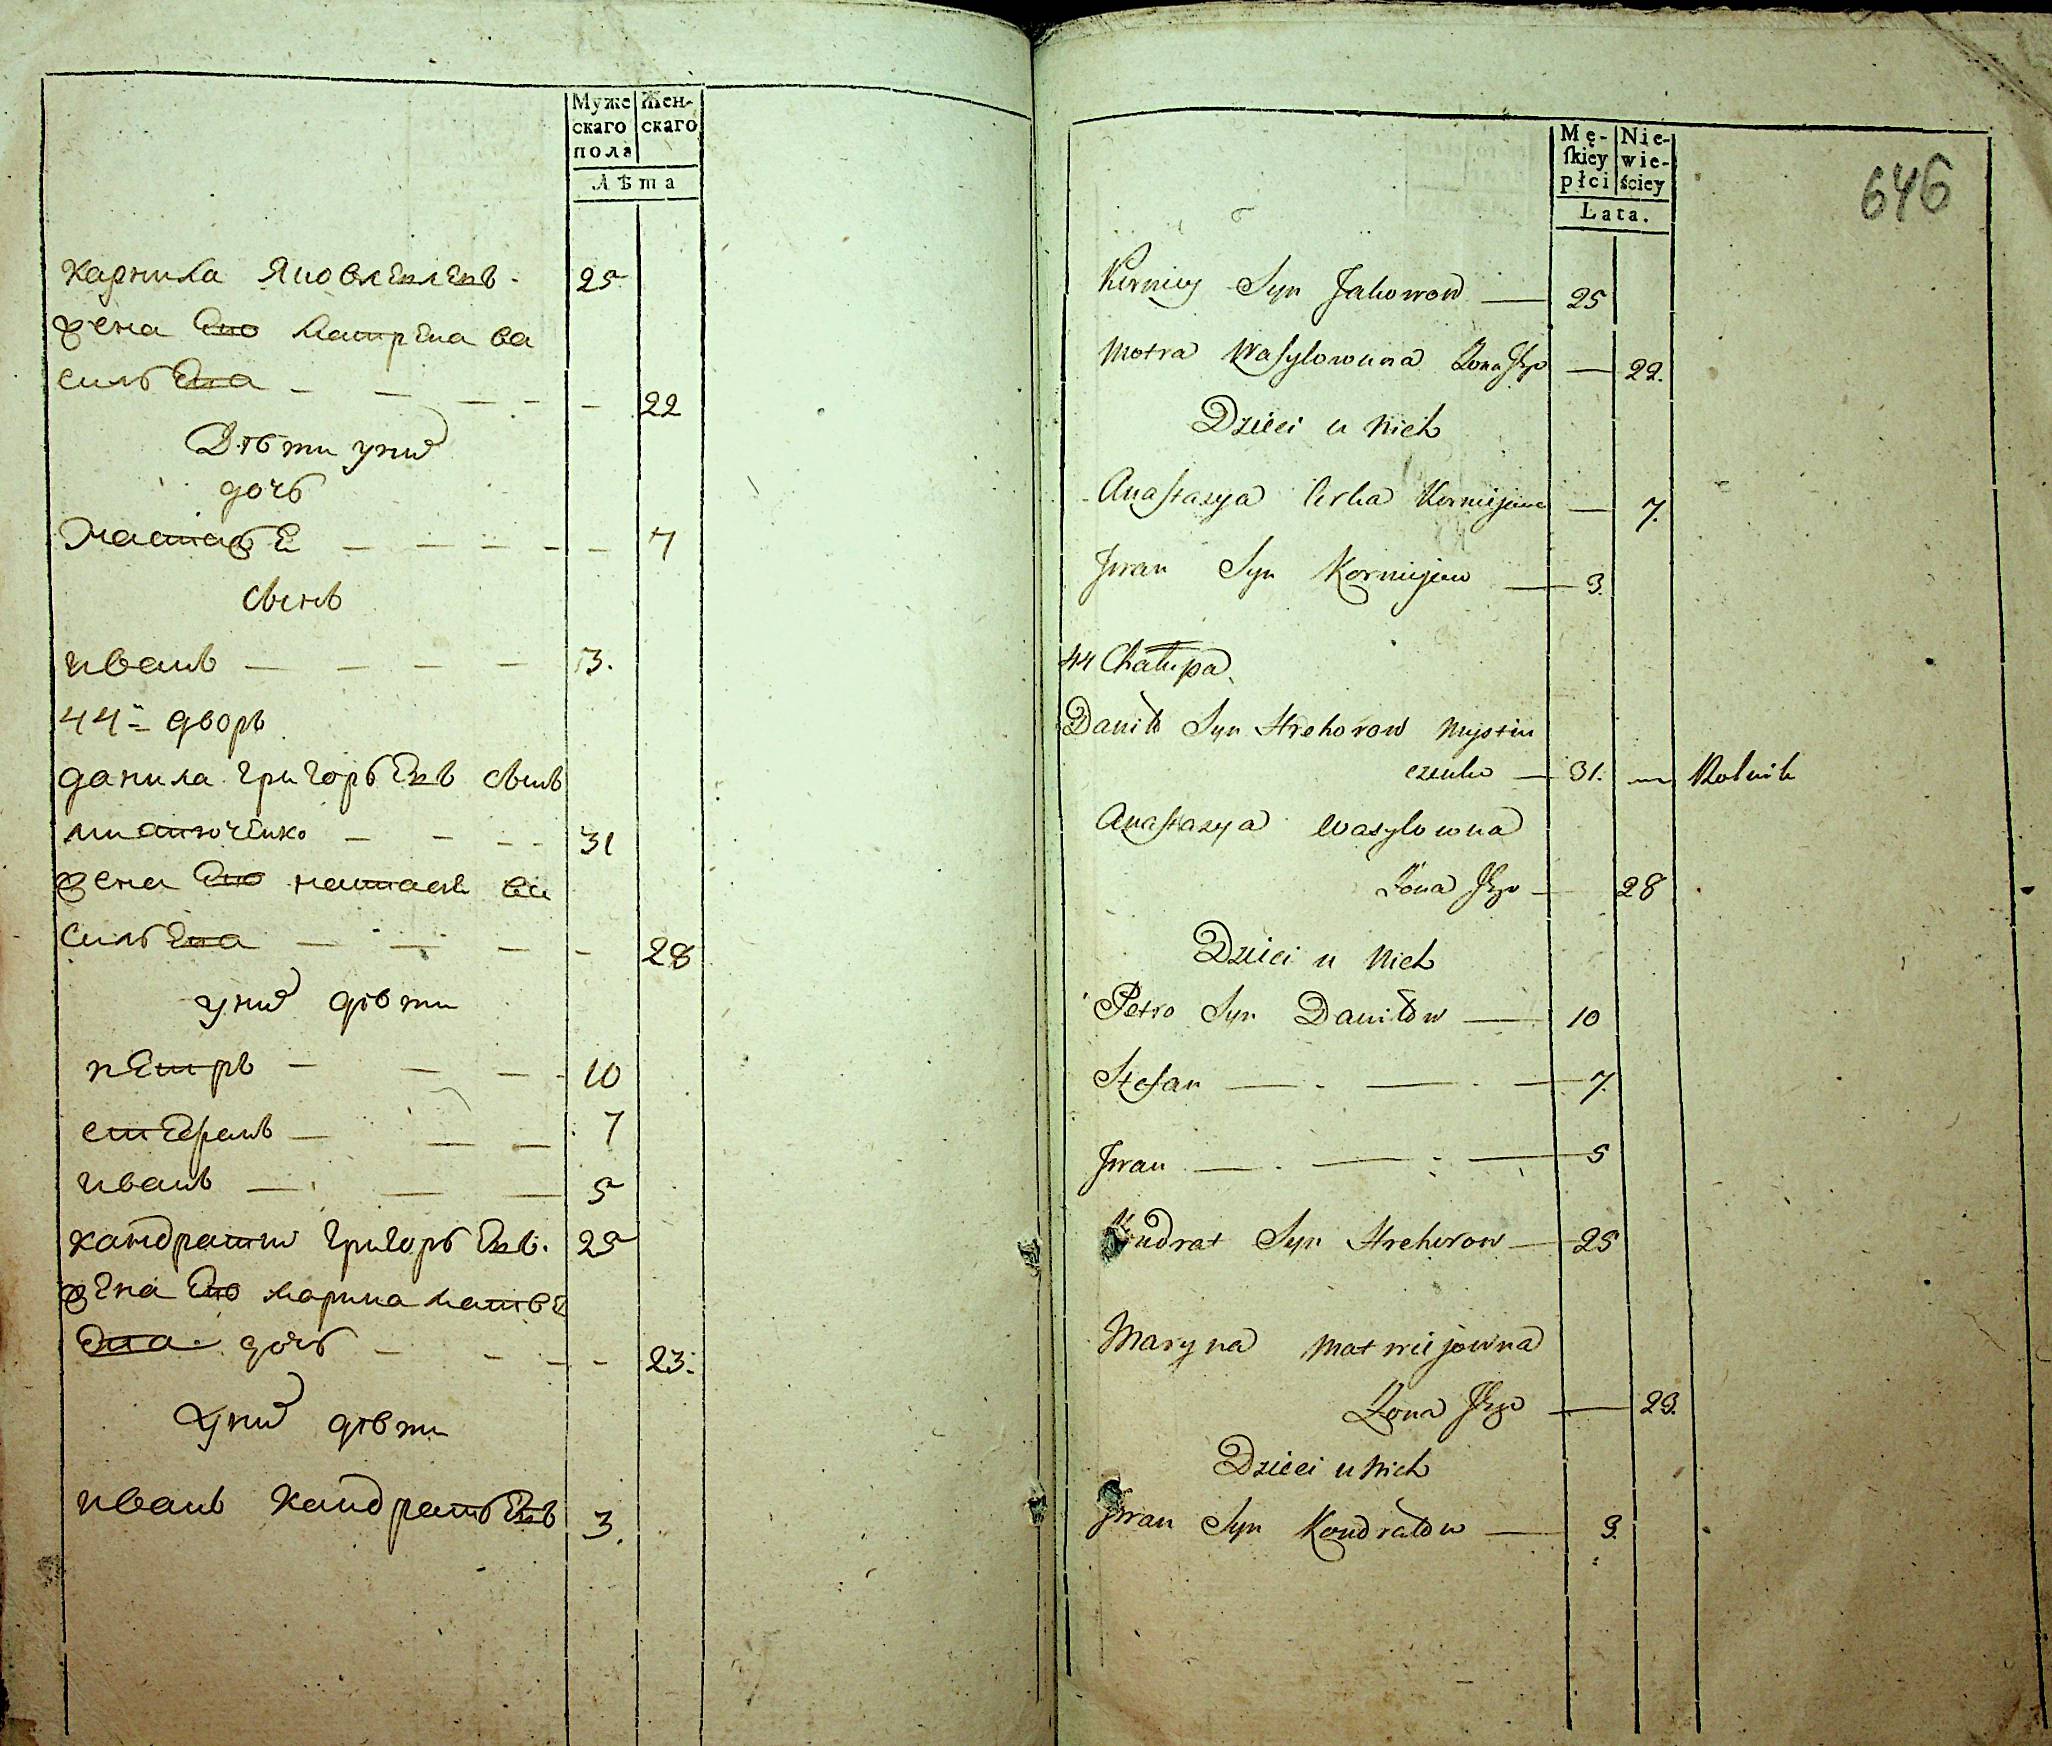 Муже
скаго
пола
Жен-
скаго
Лѣта
карнила Яковлевлевъ. 25
жена Его матрена ва
сильева — — — — — 22
Дѣти у них
дочь
настасе — — — — — 7
сынъ
иванъ — — — — 3.
44-й дворъ
данила григорьевъ сынъ
митюченко — — — - 31
жена Его настася ва
сильева — — — — 28
у них дѣти
петръ — — — - 10
стефанъ — — — 7
иванъ — — — 5
кандратий григорьевъ. 25
жена Его марина матве
ева дочь — — — — 23.
у них дѣти
иванъ кандратьевъ 3.
Mę-
skiey
płci
Nie-
wie-
ściey
Lata.
646
Korniey Syn Jakowow — 25
Motra Wasylowna Żona Jego — 22.
Dzieci u Nich
Anastazya Corka Kornijowa — 7.
Jwan Syn Kornijow — 3.
44 Chałupa
Daniło Syn Hrehorow Mystiu
czenko — 31. — Rolnik
Anastazya Wasylowna
Żona Jego — 28
Dzieci u Nich
Petro Syn Daniłow — 10
Stefan — - — - — 7.
Jwan — - — - — 5
Kondrat Syn Hrehorow — 25
Maryna Matwiejowna
Żona Jego — 23.
Dzieci u Nich
Jwan Syn Kondratow — 3.